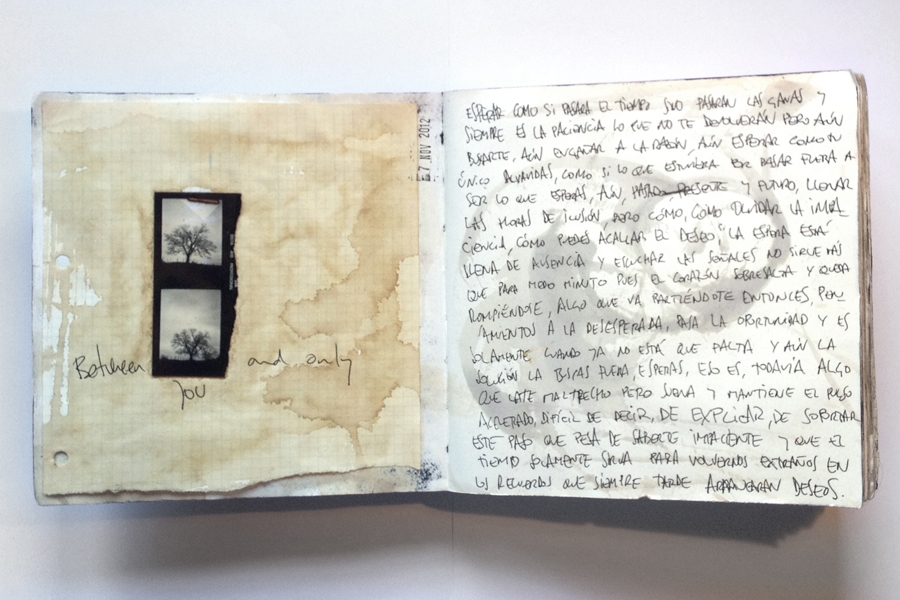 Between and only
you
E7 NOV 2012
ESPERAR COMO SI PASARA EL TIEMPO SOLO PASARAN LAS GANAS Y
SIEMPRE ES LA PACIENCIA LO QUE NO TE DEVOLVERÁN PERO AÚN
BUSCARTE, AÚN ENGAÑAR A LA RAZÓN, AÚN ESPERAR COMO TU
ÚNICO, COMO SI LO QUE ESTUVIERA POR PASAR FUERA A
SER LO QUE ESPERAS, AÚN, PASADO PRESENTE Y FUTURO, LLENAR
LAS HORAS DE ILUSIÓN, PERO CÓMO, CÓMO OLVIDAR LA IMPA
CIENCIA, CÓMO PUEDES ACALLAR EL DESEO LA ESPERA ESTÁ
LLENA DE AUSENCIA Y ESCUCHAR LAS SEÑALES NO SIRVE MÁS
QUE PARA MEDIO MINUTO PUES EL CORAZÓN SOBRESALTA Y QUEDA
ROMPIÉNDOSE, ALGO QUE VA PARTIÉNDOTE ENTONCES, PEN
SAMIENTOS A LA DESESPERADA, PASA LA OPORTUNIDAD Y ES
SOLAMENTE CUANDO YA NO ESTÁ QUE FALTA Y AÚN LA
SOLUCIÓN LA BUSCAS FUERA, ESPERAS, ESO ES, TODAVÍA ALGO
QUE LATE MALTRECHO PERO SUENA Y MANTIENE EL PULSO
ACELERADO, DIFÍCIL DE DECIR, DE EXPLICAR, DE
ESTE PASO QUE PESA DE SABERTE IMPACIENTE Y QUE EL
TIEMPO SOLAMENTE SIRVA PARA VOLVERNOS EXTRAÑOS EN
LOS RECUERDOS QUE SIEMPRE TARDE ARRANCARAN DESEOS.